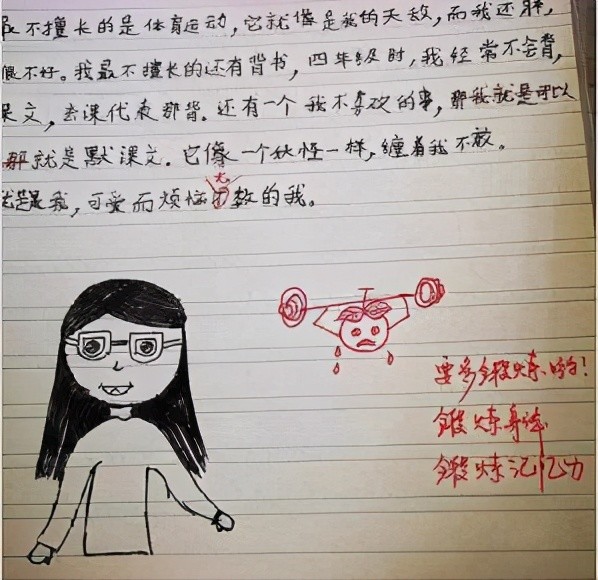 最不擅长的是体育运动，它就像是我的天敌，而我还胖，
很不好。我最不擅长的还有背书，四年级时，我经常不会背，
课文，去课代表那背。还有一个我不喜欢的事，那我就是可以
那就是默课文。它像一个妖怪一样，缠着我不放。
就是我，可爱而烦恼无数的我。
要多锻炼哟！
锻炼身体
锻炼记忆力